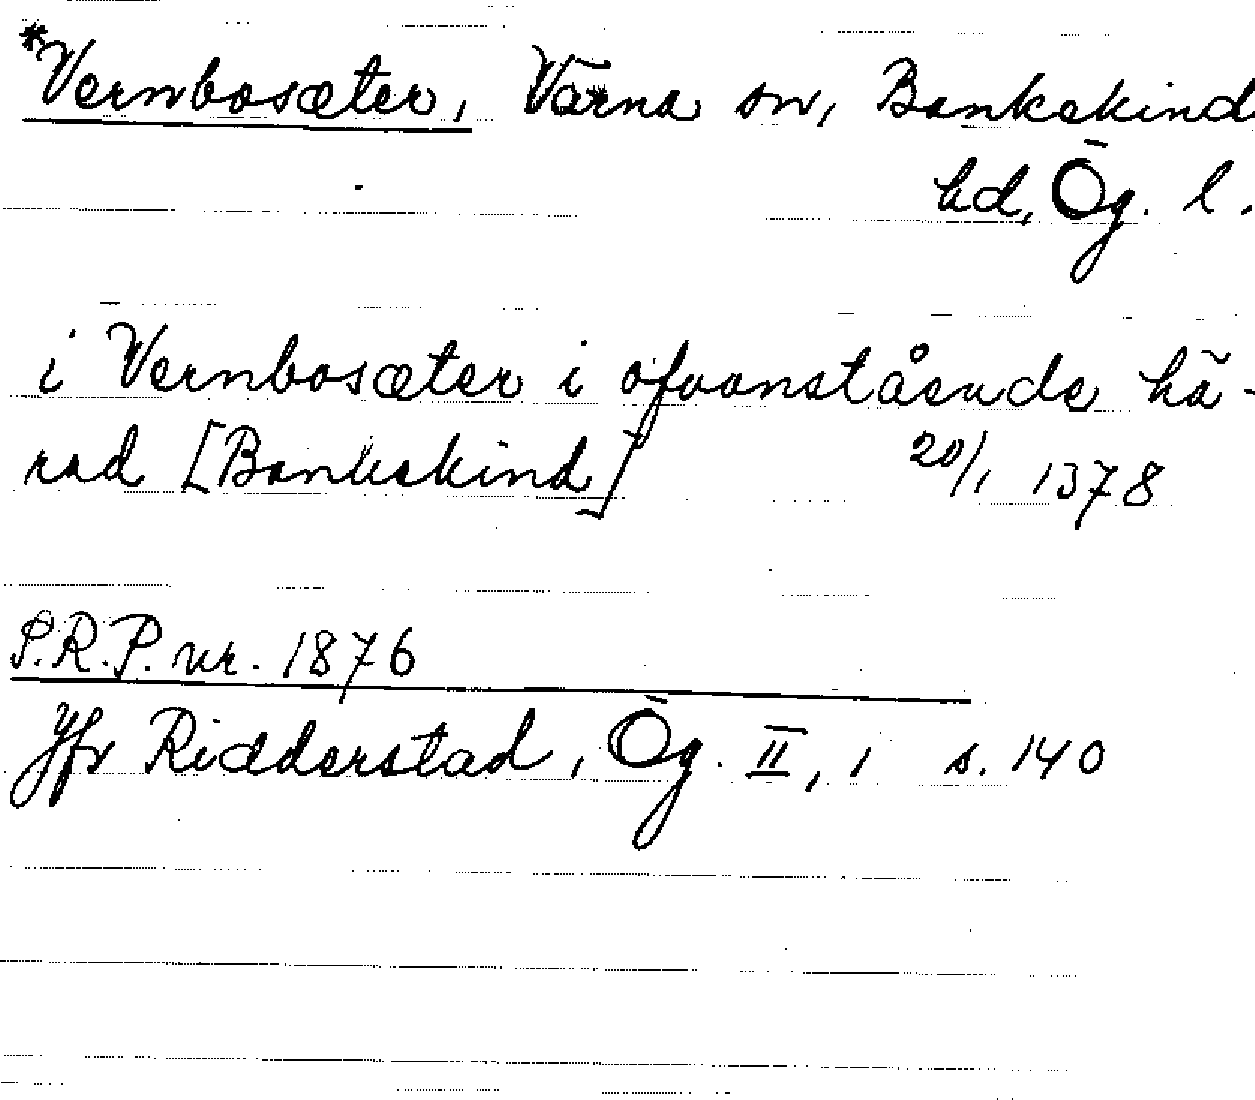 *Vernbosæter, Värna sn, Bankekinds
hd, Ög. l.
i Vernbosæter i ofvanstående hä-
rad [Bankekind] 20/1 1378
P.R.P. nr. 1876
Jfr Ridderstad, Ög. II, 1 s. 140